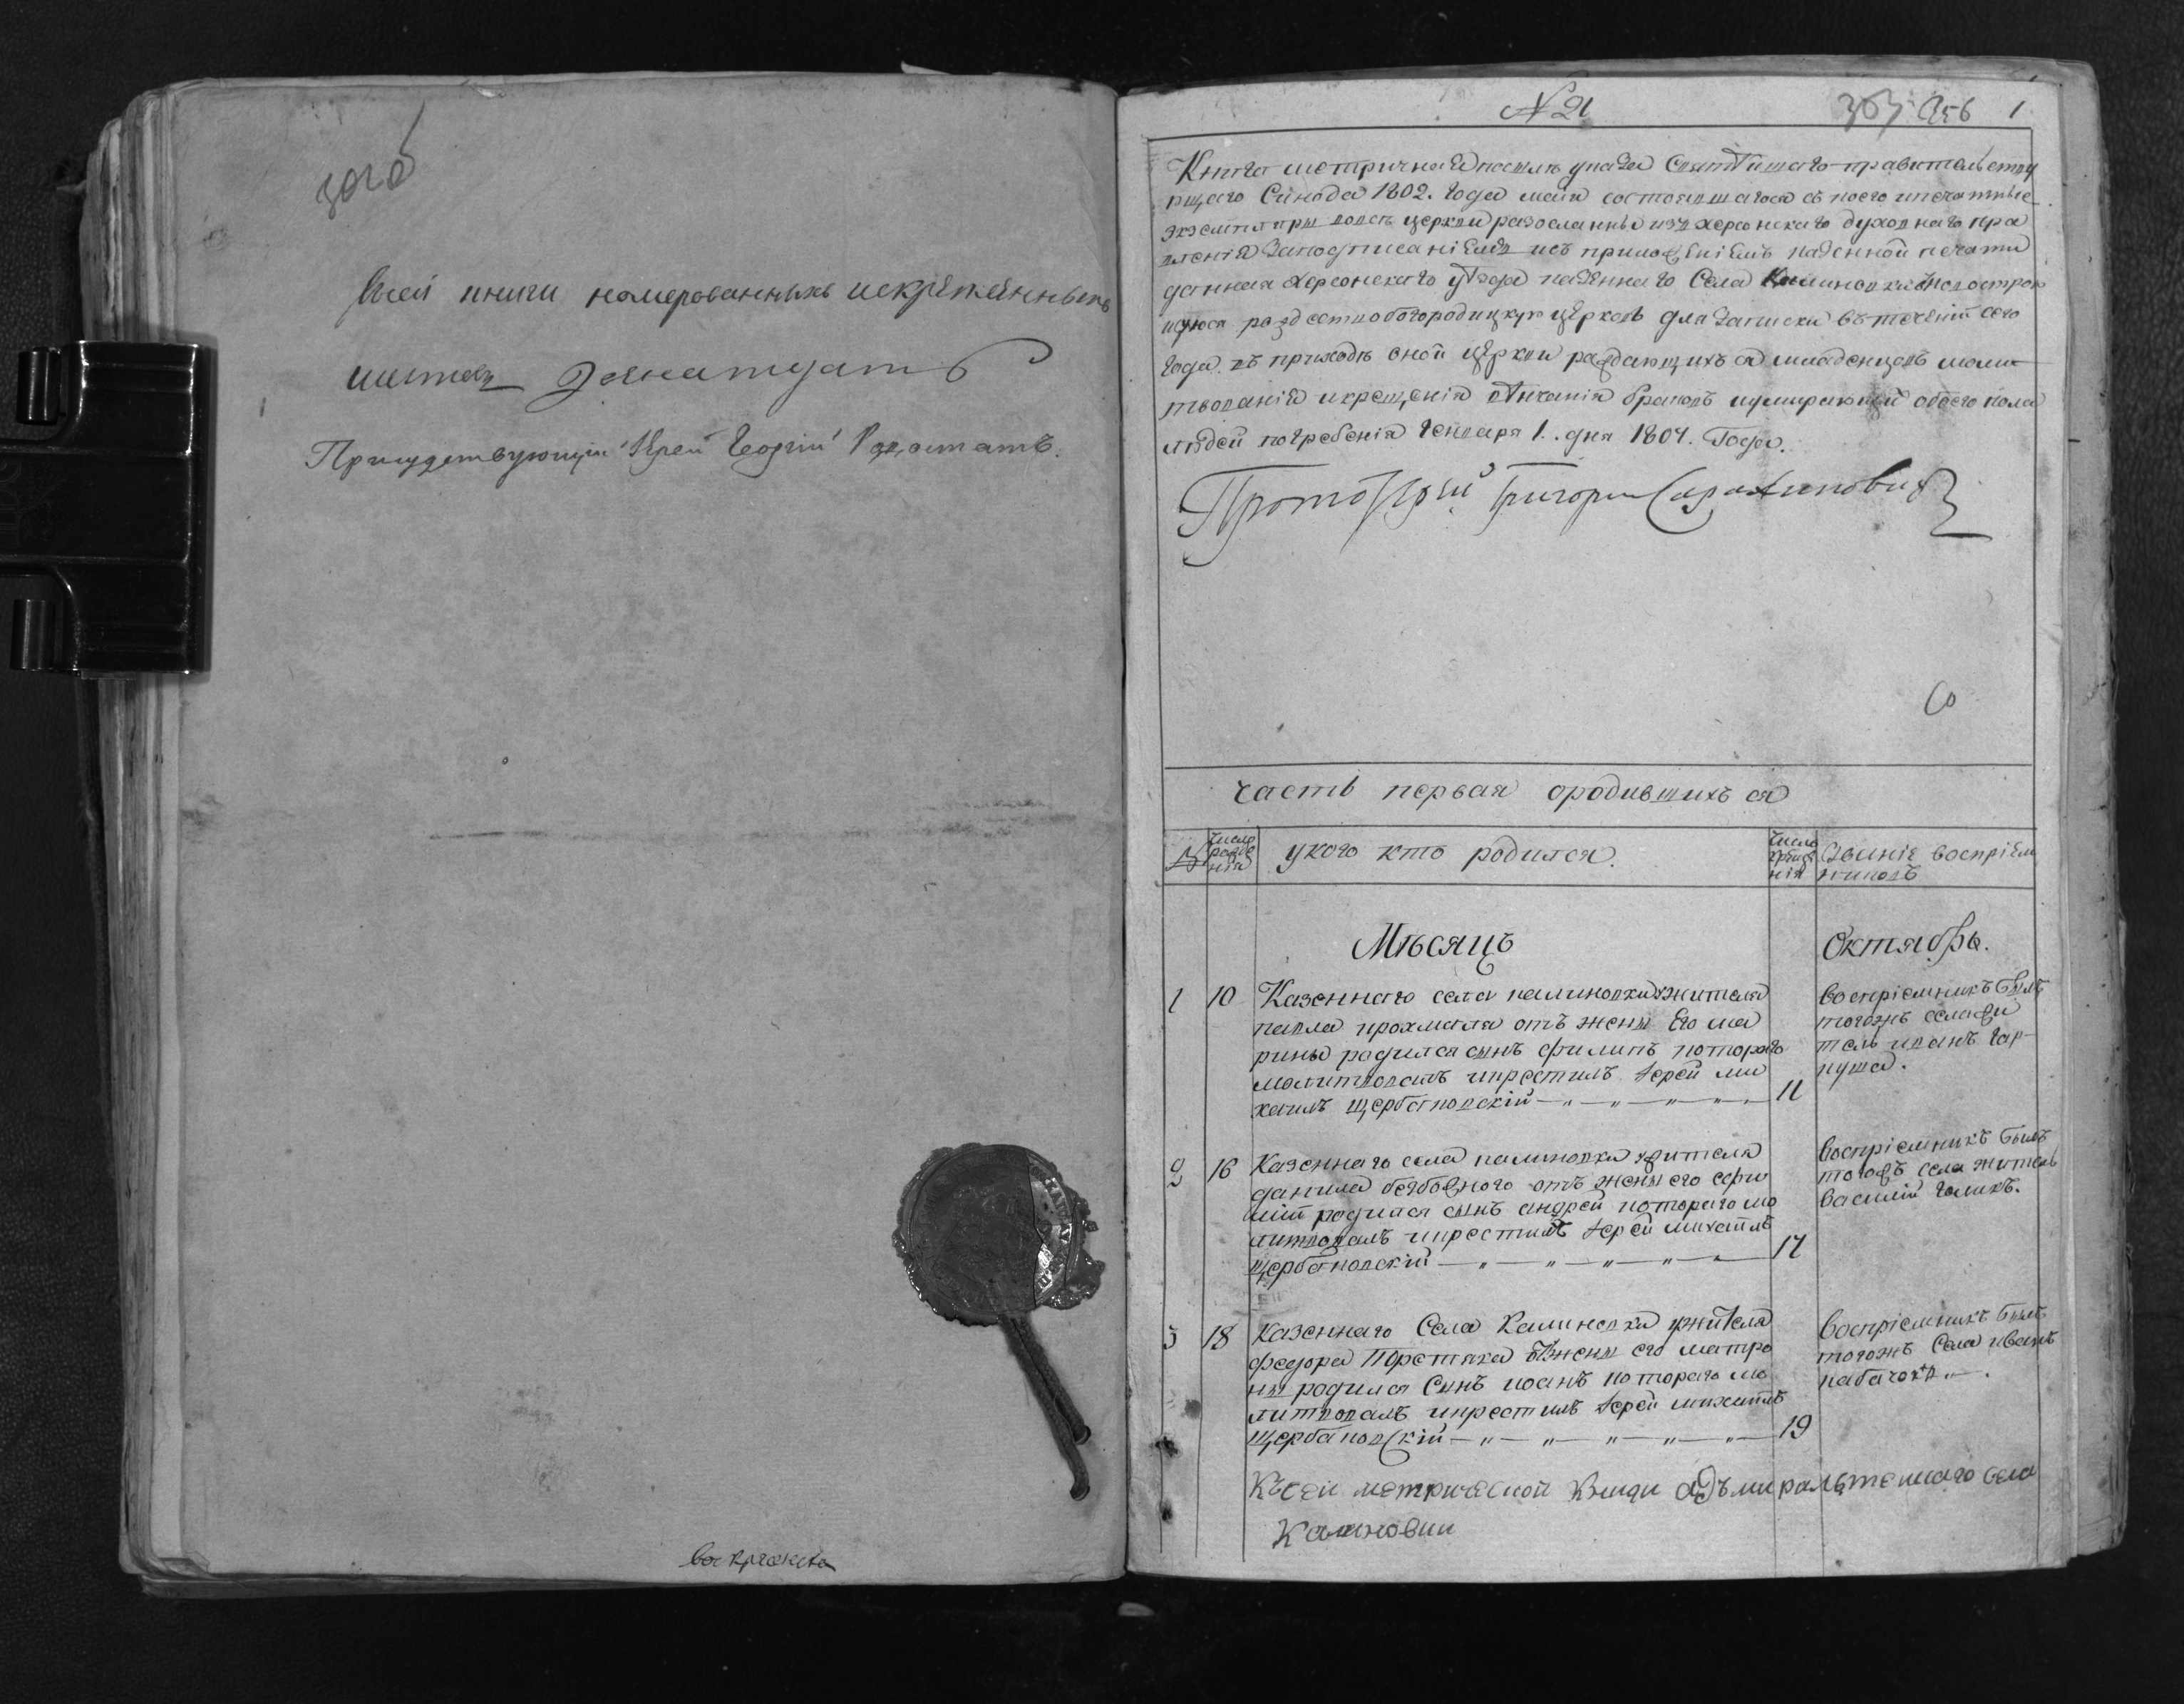 всей книги номерованныхъ искрѣпленныхъ
листовъ
Присудствующій Іерей Георгій
N 21
303 256 1
Книга метричная посилѣ указа Святѣйшаго правительству
ющаго Сѵнода 1802. года маїя состоявшагося съ коего ипечатные
экземпляры повсѣ церкви разосланны изъ херсонскаго духовнаго пра
вленія Заподписаніемъ исъ приложеніемъ казенной печати
данная Херсонскаго уѣзда казеннаго Села Калиновки
рождественобогородицкую церковь для Записки въ теченіи сего
года въ приходѣ оной церкви раждающихъся младенцовъ моли
твованія икрещенія вѣнчанія браковъ иумирающій обоего пола
людей погребенія Генваря 1. дня 1804. Года.
Протоіерей Григорій
часть первая ородившихъ ся
№ число рожде нія укого кто родился. число креще нія Званіе воспріем никовъ
Мѣсяцъ Октябрь.
1 10 Казеннаго села калиновки жителя
павла прохмаля отъ жены Его ма
рины родился сынъ филипъ котораго
молитвовалъ икрестилъ Іерей ми
хаилъ щербановскій — „ — „ — „ — „ — 11
воспріемникъ былъ
тогожъ села жи
тель иванъ гар-
куша.
2 16 Казеннаго села калиновки жителя
данила безбожного отъ жены его Ефи
міи родился сынъ андрей котораго мо
литвовалъ икрестилъ Іерей михаилъ
щербановскій — „ — „ — „ — „ — 17
воспріемникъ былъ
тогожъ села житель
василій голикъ.
3 18 Казеннаго Села Калиновки жителя
федора Порстяка отъжены его матро
ны родился Сынъ иоанъ котораго мо
литвовалъ икрестилъ Іерей михаилъ
Щербановскій — „ — „ — „ — „ — 19
воспріемникъ былъ
тогожъ Села иванъ
Къ сей метрической Книги адъмиральтейскаго села
Калиновки